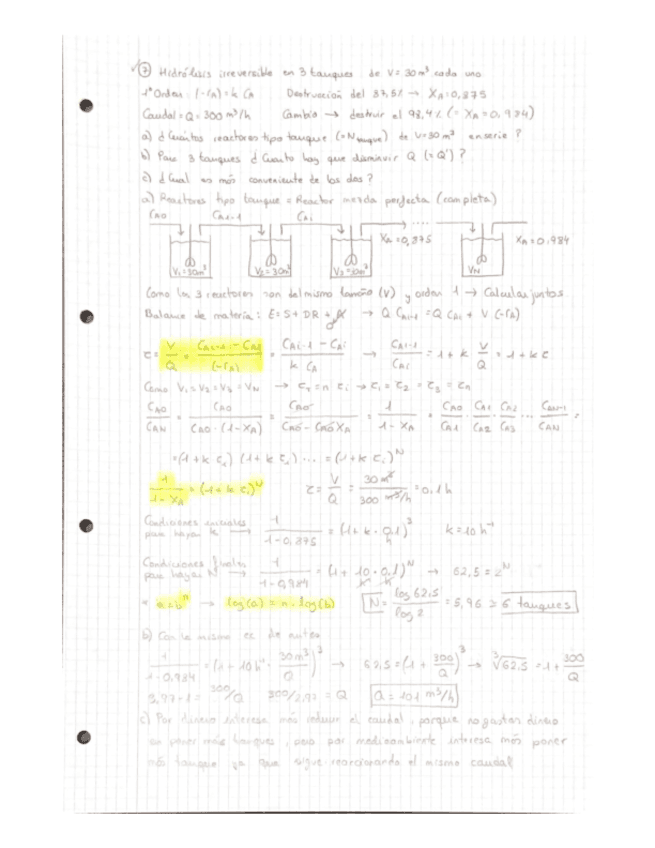 ⑦ Hidrólisis irreversible en 3 tanques de V=30m³ cada uno
1º Orden: (-rA)=k CA Destrucción del 87,5% → XA=0,875
Caudal=Q=300 m³/h Cambio → destruir el 98,4% (= XA=0,984)
a) ¿Cuántos reactores tipo tanque (=N tanque) de V=30m³ en serie?
b) Para 3 tanques ¿Cuánto hay que disminuir Q (=Q')?
c) ¿Cual es más conveniente de los dos?
a) Reactores tipo tanque = Reactor mezcla perfecta (completa)
CA0 CAi-1 CAi
XA=0,875 XA=0,984
V1=30m³ V2=30m³ V3=30m³ VN
Como los 3 reactores son del mismo tamaño (V) y orden 1 → Calculas juntos
Balance de materia: E=S+DR+A → Q CAi-1=Q CAi + V (-rA)
0
τ = V/Q = (CAi-1 - CAi)/(-rA) = (CAi-1 - CAi)/(k CA) → CAi-1/CAi = 1 + k V/Q = 1 + k τ
Como V1=V2=V3=VN → τT=n τi → τ1 = τ2 = τ3 = τn
CA0/CAN = CA0/(CA0·(1-XA)) = CA0/(CA0-CA0XA) = 1/(1-XA) = CA0/CA1 · CA1/CA2 · CA2/CA3 ... CAN-1/CAN =
=(1+k τ1) (1+k τ2) ... = (1+k τi)^N
1/(1-XA) = (1+k τi)^N τ = V/Q = 30m³/300 m³/h = 0,1h
Condiciones iniciales para hayar k → 1/(1-0,875) = (1+k·0,1)³ k=10h⁻¹
h
Condiciones finales para hayar N → 1/(1-0,984) = (1+10·0,1)^N → 62,5=2^N
* a=bⁿ → log(a)=n·log(b) N = log 62,5/log 2 = 5,96 ≥ 6 tanques
b) Con la misma ec de antes
1/(1-0,984) = (1+10h⁻¹ · 30m³/Q)³ → 62,5=(1+300/Q)³ → ³√62,5 = 1+300/Q
3,97-1=300/Q 300/2,97=Q Q=101 m³/h
c) Por dinero interesa más reducir el caudal, porque no gastas dinero
en poner más tanques, pero por medioambiente interesa más poner
más tanque ya que sigue reaccionando el mismo caudal